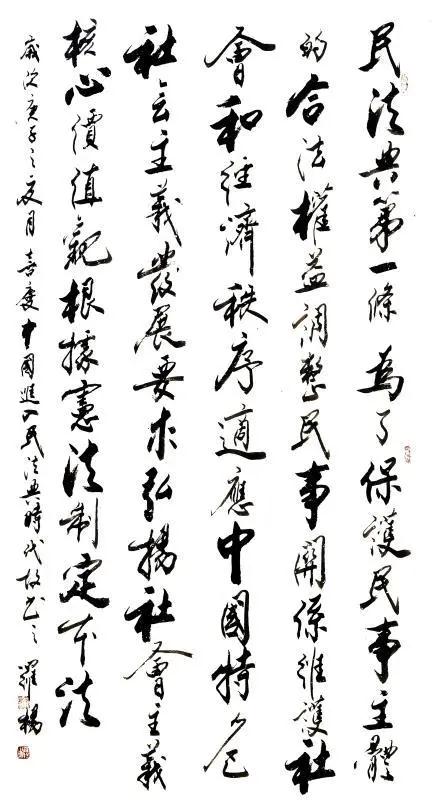 民法典第一條 為了保護民事主體
的合法權益調整民事關係維護社
會和經濟秩序適應中國特色
社会主義發展要求弘揚社會主義
核心價值觀根據憲法制定本法
歲次庚子之夏月喜中國進入民法典時代故书之 羅楊